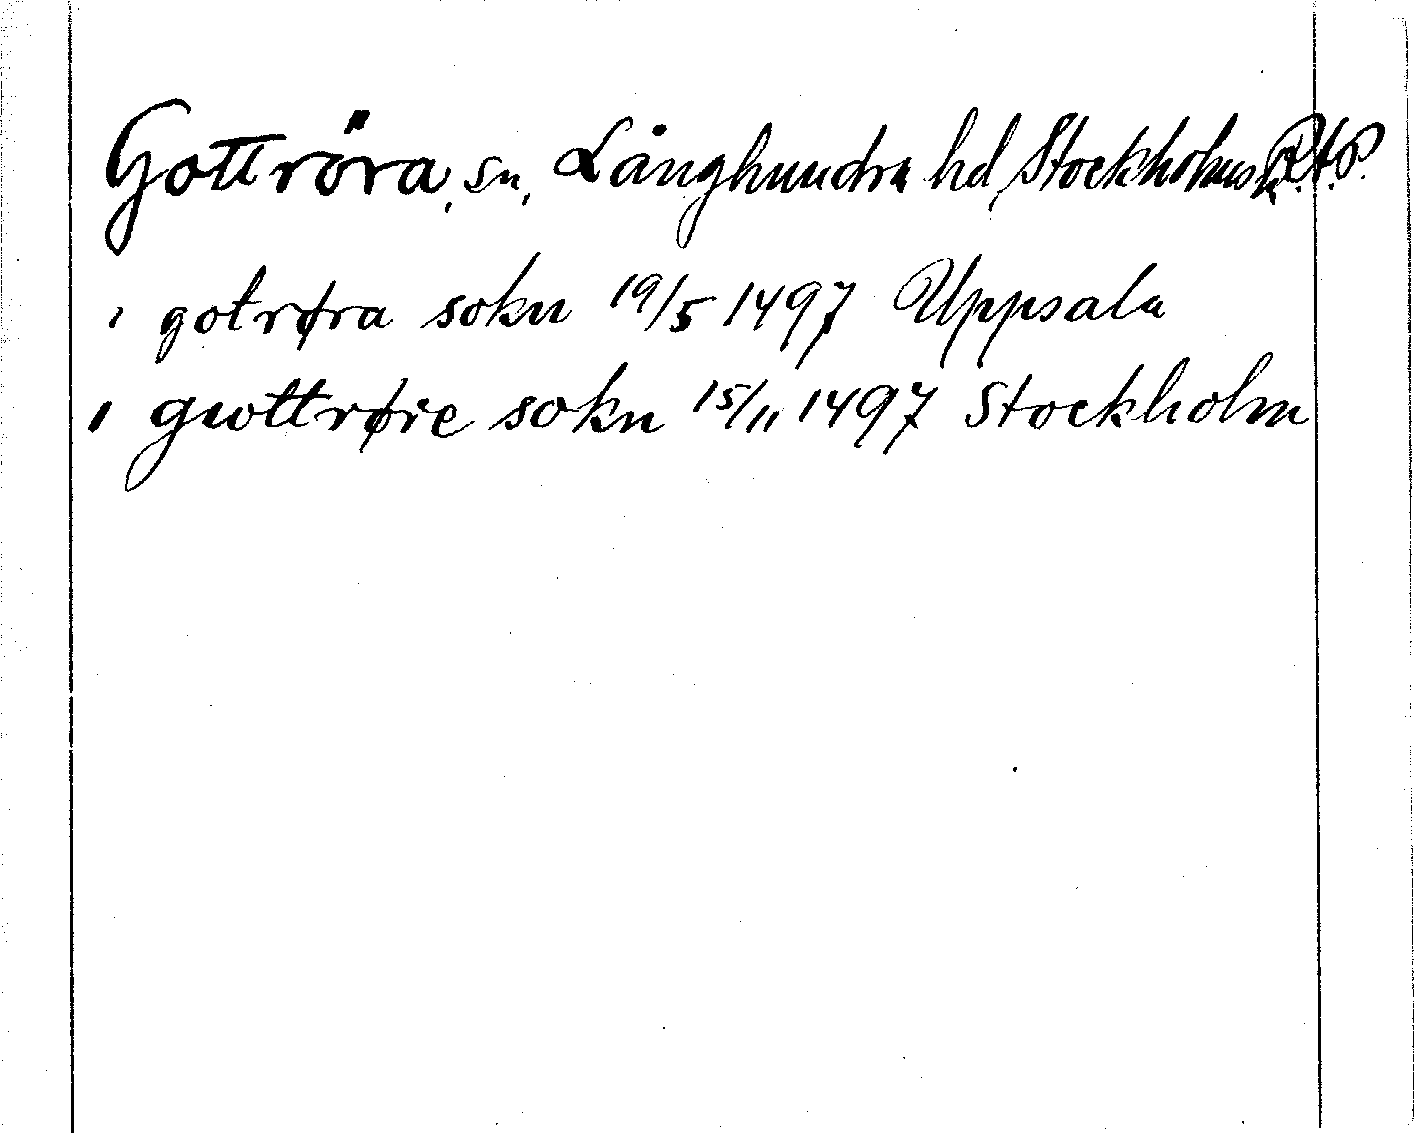 Gottröra, sn, Långhundra hd, Stockholms l. R.A.P.
i gotrøra sokn 19/5 1497 Uppsala
i gwttrøre sokn 15/11 1497 Stockholm